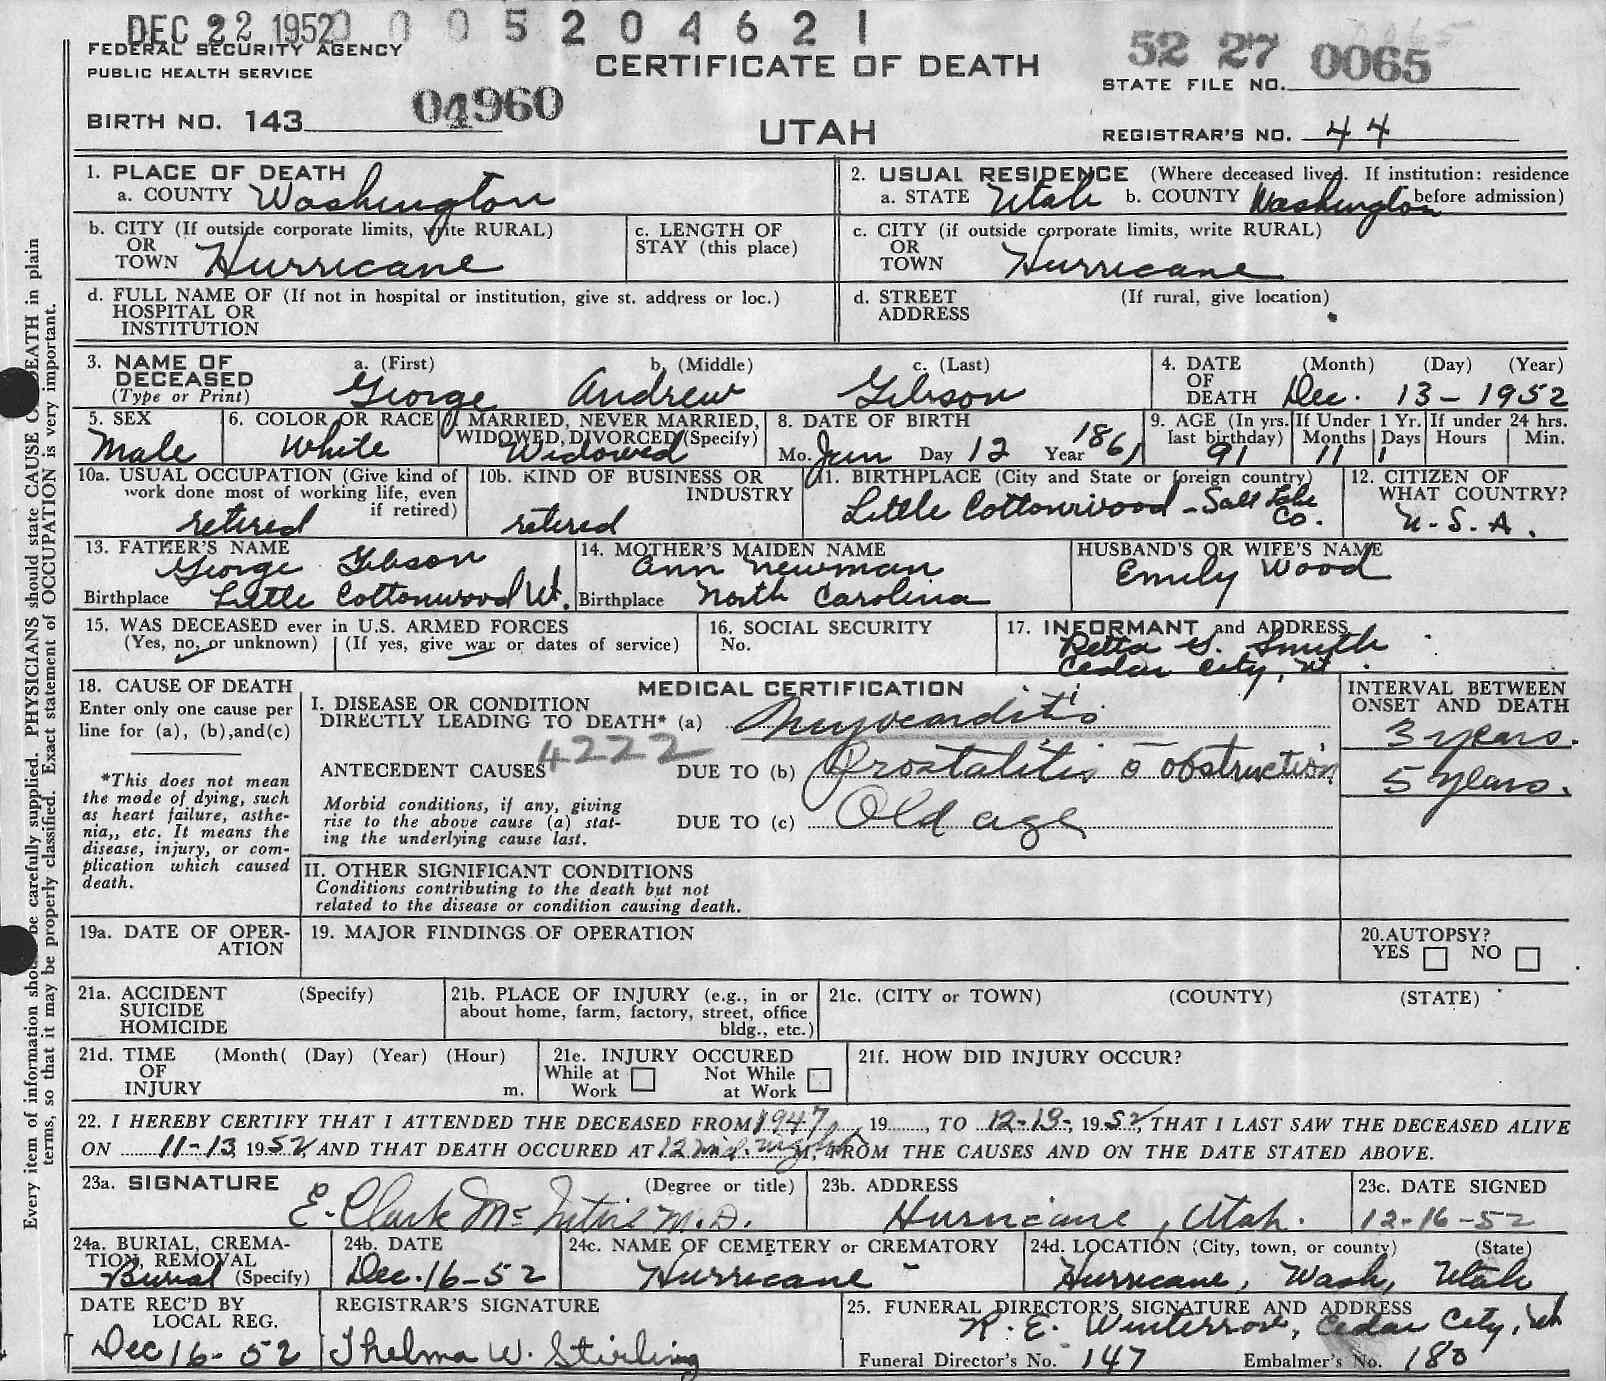 DEC 22 1952 0 0 5 2 0 4 6 2 1
FEDERAL SECURITY AGENCY
PUBLIC HEALTH SERVICE
CERTIFICATE OF DEATH
52 27 0065
STATE FILE NO.
BIRTH NO. 143 04960
UTAH
REGISTRAR'S NO. 44
1. PLACE OF DEATH
a. COUNTY Washington
2. USUAL RESIDENCE (Where deceased lived. If institution: residence before admission)
a. STATE Utah b. COUNTY Washington
b. CITY (If outside corporate limits, write RURAL)
OR
TOWN Hurricane
c. LENGTH OF
STAY (this place)
c. CITY (if outside corporate limits, write RURAL)
OR
TOWN Hurricane
d. FULL NAME OF (If not in hospital or institution, give st. address or loc.)
HOSPITAL OR
INSTITUTION
d. STREET (If rural, give location)
ADDRESS
3. NAME OF DECEASED
(Type or Print)
a. (First) b. (Middle) c. (Last)
George Andrew Gibson
4. DATE OF DEATH (Month) (Day) (Year)
Dec. 13-1952
5. SEX
Male
6. COLOR OR RACE
White
7. MARRIED, NEVER MARRIED,
WIDOWED, DIVORCED (Specify)
Widowed
8. DATE OF BIRTH
Mo. Jan Day 12 Year 1861
9. AGE (In yrs. last birthday)
91
If Under 1 Yr.
Months Days
11 1
If under 24 hrs.
Hours Min.
10a. USUAL OCCUPATION (Give kind of
work done most of working life, even
if retired)
retired
10b. KIND OF BUSINESS OR
INDUSTRY
retired
11. BIRTHPLACE (City and State or foreign country)
Little Cottonwood - Salt Lake
Co.
12. CITIZEN OF
WHAT COUNTRY?
U.S.A.
13. FATHER'S NAME
George Gibson
Birthplace Little Cottonwood Ut.
14. MOTHER'S MAIDEN NAME
Ann Newman
Birthplace North Carolina
HUSBAND'S OR WIFE'S NAME
Emily Wood
15. WAS DECEASED ever in U.S. ARMED FORCES
(Yes, no, or unknown) (If yes, give war or dates of service)
16. SOCIAL SECURITY
No.
17. INFORMANT and ADDRESS
Retta G. Smith
Cedar City, Ut.
18. CAUSE OF DEATH
Enter only one cause per
line for (a), (b), and (c)
*This does not mean
the mode of dying, such
as heart failure, asthe-
nia,, etc. It means the
disease, injury, or com-
plication which caused
death.
MEDICAL CERTIFICATION
I. DISEASE OR CONDITION
DIRECTLY LEADING TO DEATH* (a) Myocarditis
4222
ANTECEDENT CAUSES DUE TO (b) Prostatitis c obstruction
Morbid conditions, if any, giving
rise to the above cause (a) stat-
ing the underlying cause last.
DUE TO (c) Old age
INTERVAL BETWEEN
ONSET AND DEATH
3 years.
5 years.
II. OTHER SIGNIFICANT CONDITIONS
Conditions contributing to the death but not
related to the disease or condition causing death.
19a. DATE OF OPER-
ATION
19. MAJOR FINDINGS OF OPERATION
20. AUTOPSY?
YES NO
21a. ACCIDENT (Specify)
SUICIDE
HOMICIDE
21b. PLACE OF INJURY (e.g., in or
about home, farm, factory, street, office
bldg., etc.)
21c. (CITY or TOWN) (COUNTY) (STATE)
21d. TIME (Month( (Day) (Year) (Hour)
OF
INJURY m.
21e. INJURY OCCURED
While at Work
Not While at Work
21f. HOW DID INJURY OCCUR?
22. I HEREBY CERTIFY THAT I ATTENDED THE DECEASED FROM 1947, 19......, TO 12-13-, 1952, THAT I LAST SAW THE DECEASED ALIVE
ON 11-13 1952 AND THAT DEATH OCCURED AT 12 mid. night M. FROM THE CAUSES AND ON THE DATE STATED ABOVE.
23a. SIGNATURE (Degree or title)
E. Clark McIntire M.D.
23b. ADDRESS
Hurricane, Utah.
23c. DATE SIGNED
12-16-52
24a. BURIAL, CREMA-
TION, REMOVAL
Burial (Specify)
24b. DATE
Dec. 16-52
24c. NAME OF CEMETERY or CREMATORY
Hurricane
24d. LOCATION (City, town, or county) (State)
Hurricane, Wash, Utah
DATE REC'D BY
LOCAL REG.
Dec 16-52
REGISTRAR'S SIGNATURE
Thelma W. Stirling
25. FUNERAL DIRECTOR'S SIGNATURE AND ADDRESS
R. E. Winterrose, Cedar City, Ut
Funeral Director's No. 147 Embalmer's No. 180
Every item of information should be carefully supplied. PHYSICIANS should state CAUSE OF DEATH in plain
terms, so that it may be properly classified. Exact statement of OCCUPATION is very important.